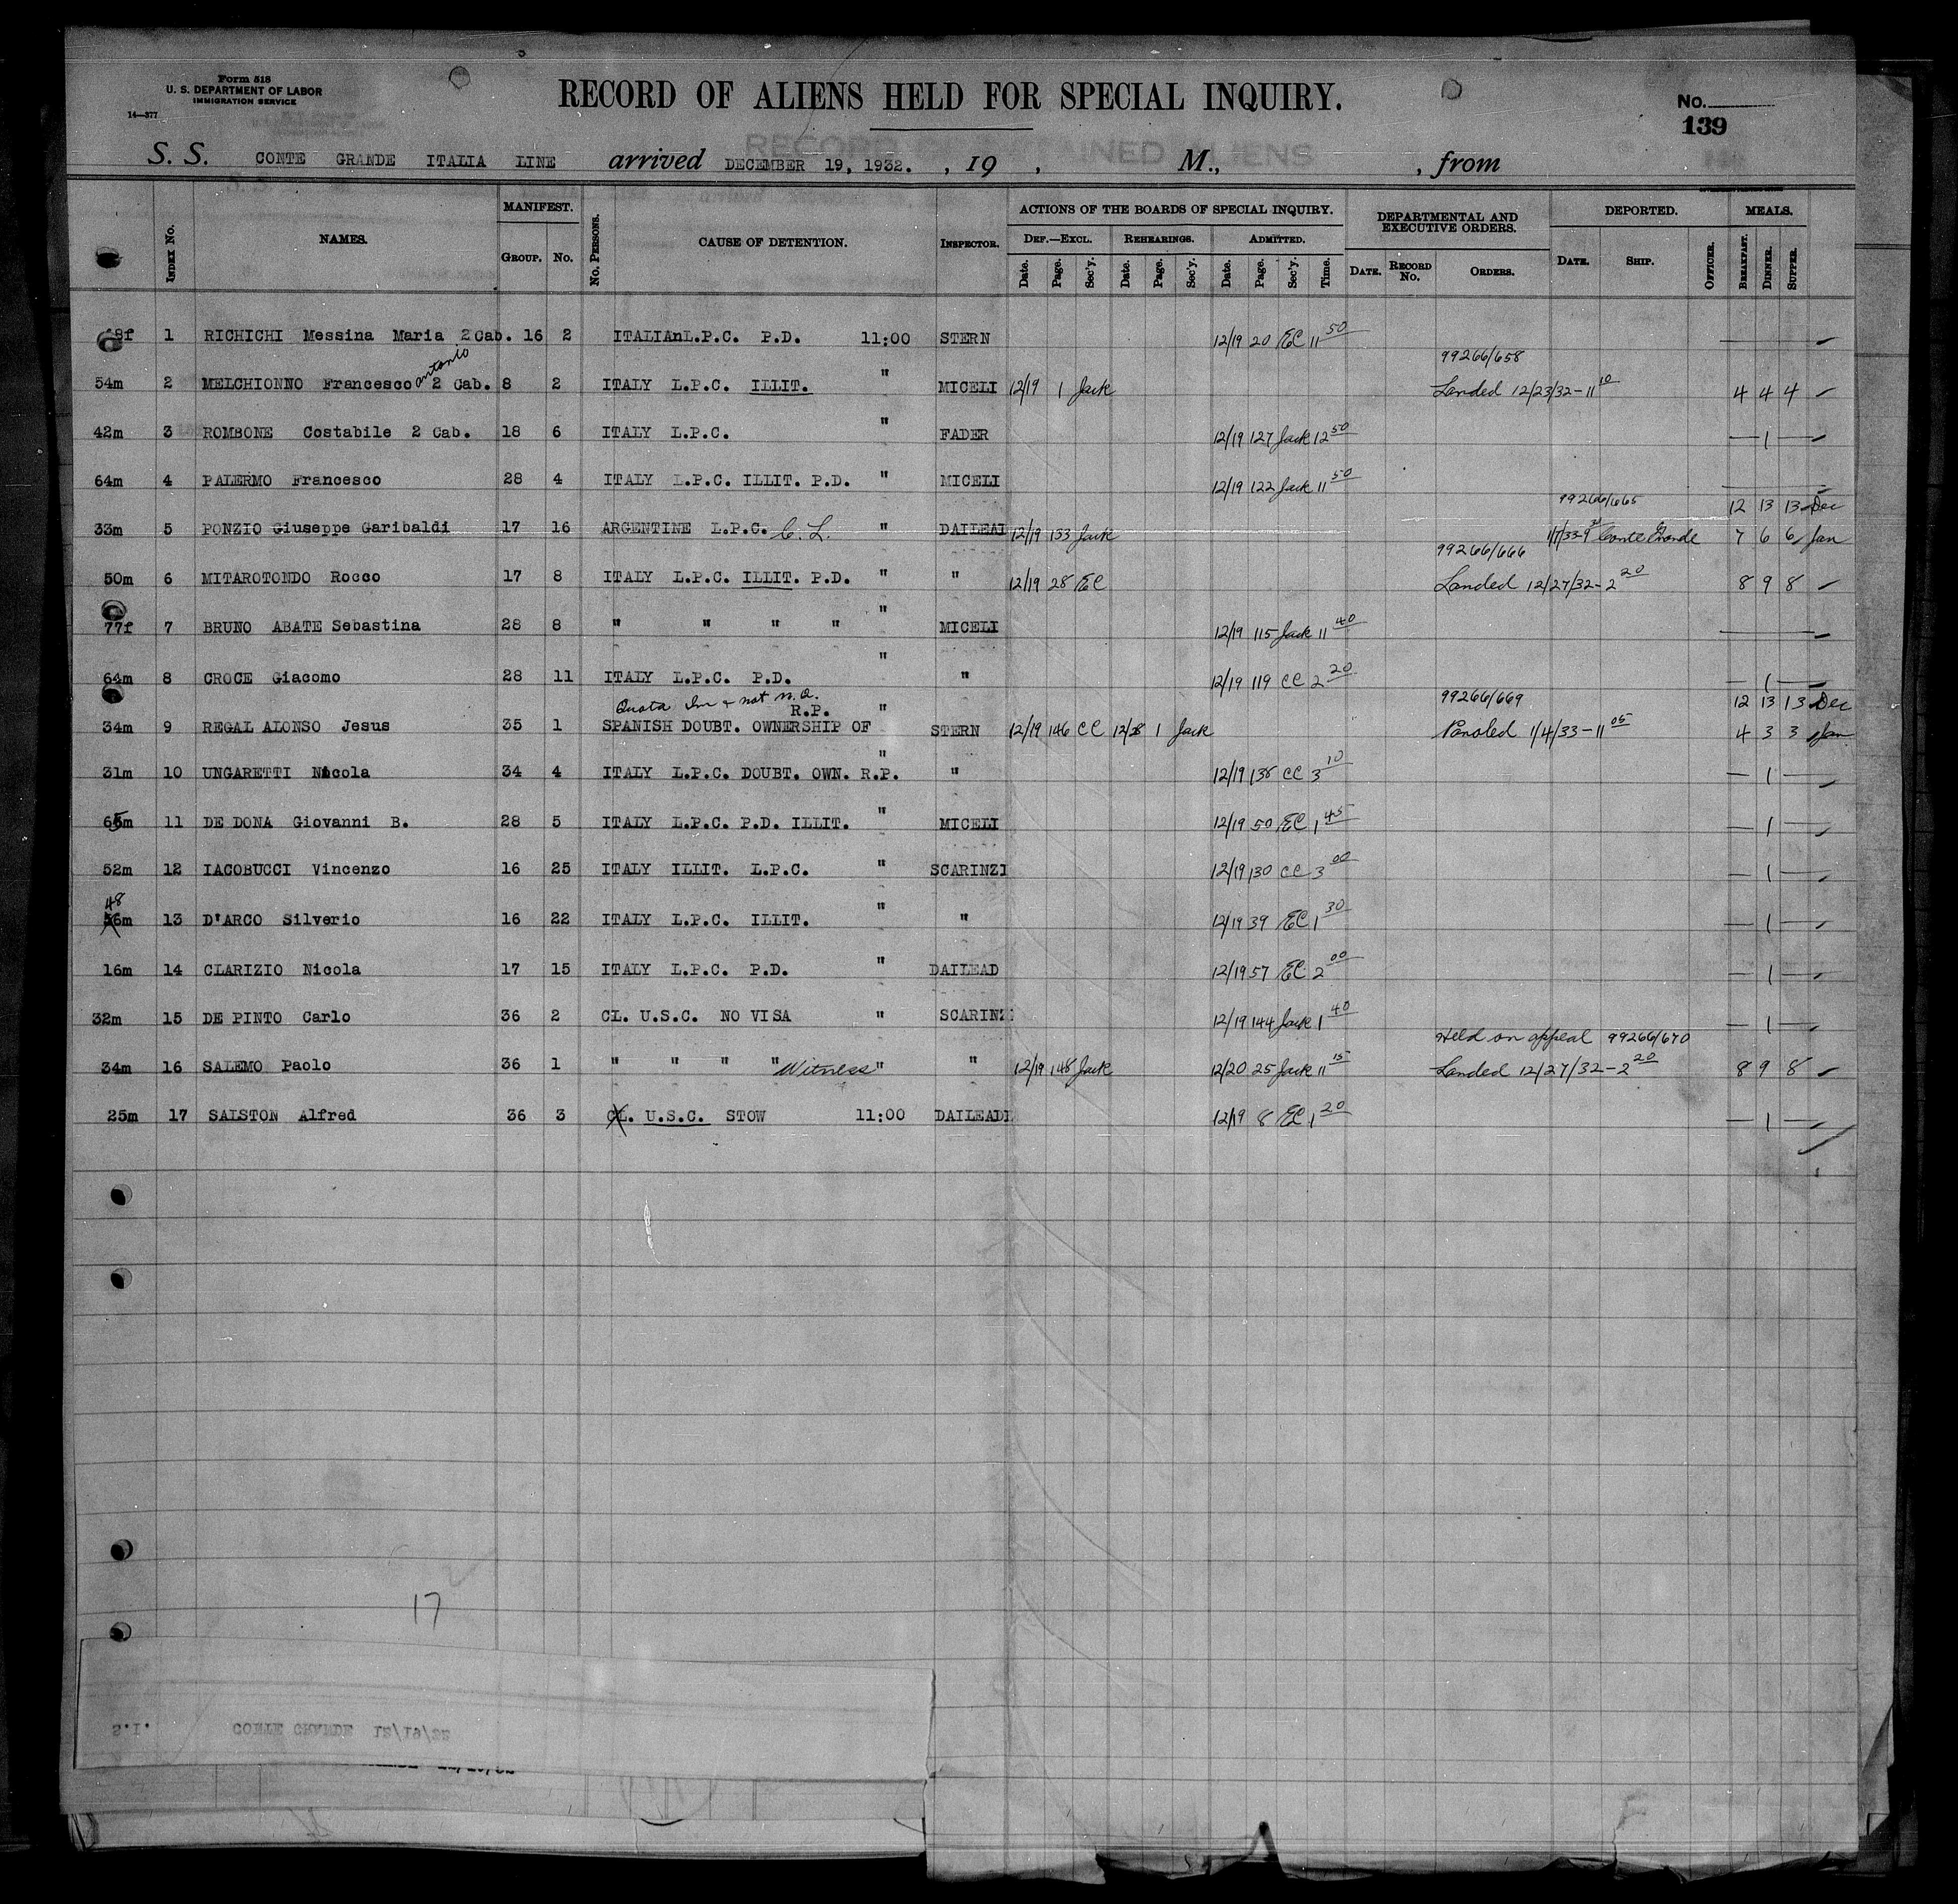 Form 518
U. S. DEPARTMENT OF LABOR
IMMIGRATION SERVICE
14—377
RECORD OF ALIENS HELD FOR SPECIAL INQUIRY.
No.
139
S. S. CONTE GRANDE ITALIA LINE arrived DECEMBER 19, 1932. , 19 , M., , from
INDEX No. NAMES. MANIFEST. GROUP. No. No. PERSONS. CAUSE OF DETENTION. INSPECTOR. ACTIONS OF THE BOARDS OF SPECIAL INQUIRY. DEF.—EXCL. Date. Page. Sec'y. REHEARINGS. Date. Page. Sec'y. ADMITTED. Date. Page. Sec'y. Time. DEPARTMENTAL AND EXECUTIVE ORDERS. DATE. RECORD No. ORDERS. DEPORTED. DATE. SHIP. OFFICER. MEALS. BREAKFAST. DINNER. SUPPER.
1 RICHICHI Messina Maria 2 Cab. 16 2 ITALIAnL.P.C. P.D. 11:00 STERN 12/19 20 EC 11 50
antonio 99266/658
54m 2 MELCHIONNO Francesco 2 Cab. 8 2 ITALY L.P.C. ILLIT. " MICELI 12/19 1 Jack Landed 12/23/32-11 10 4 4 4
42m 3 ROMBONE Costabile 2 Cab. 18 6 ITALY L.P.C. " FADER 12/19 127 Jack 12 50 — 1 —
64m 4 PALERMO Francesco 28 4 ITALY L.P.C. ILLIT. P.D. " MICELI 12/19 122 Jack 11 50
99266/665 12 13 13 Dec
33m 5 PONZIO Giuseppe Garibaldi 17 16 ARGENTINE L.P.C. C. L. " DAILEAD 12/19 153 Jack 1/7/33-9 Conte Grande 7 6 6 Jan
99266/666
50m 6 MITAROTONDO Rocco 17 8 ITALY L.P.C. ILLIT. P.D. " " 12/19 28 EC Landed 12/27/32-2 20 8 9 8
77f 7 BRUNO ABATE Sebastina 28 8 " " " " " MICELI 12/19 115 Jack 11 40
64m 8 CROCE Giacomo 28 11 ITALY L.P.C. P.D. " " 12/19 119 CC 2 20 — 1 —
Quota Im & not n.Q. R.P. " 99266/669 12 13 13 Dec
34m 9 REGAL ALONSO Jesus 35 1 SPANISH DOUBT. OWNERSHIP OF STERN 12/19 146 CC 12/28 1 Jack Paroled 1/4/33-11 05 4 3 3 Jan
31m 10 UNGARETTI Nicola 34 4 ITALY L.P.C. DOUBT. OWN. R.P. " " 12/19 138 CC 3 10 — 1 —
65m 11 DE DONA Giovanni B. 28 5 ITALY L.P.C. P.D. ILLIT. " MICELI 12/19 50 EC 1 45 — 1 —
52m 12 IACOBUCCI Vincenzo 16 25 ITALY ILLIT. L.P.C. " SCARINZI 12/19 130 CC 3 00 — 1 —
48
56m 13 D'ARCO Silverio 16 22 ITALY L.P.C. ILLIT. " " 12/19 39 EC 1 30 — 1 —
16m 14 CLARIZIO Nicola 17 15 ITALY L.P.C. P.D. " DAILEAD 12/19 57 EC 2 00 — 1 —
32m 15 DE PINTO Carlo 36 2 CL. U.S.C. NO VISA " SCARINZ 12/19 144 Jack 1 40 — 1 —
Held on appeal 99266/670
34m 16 SALEMO Paolo 36 1 " " " " Witness " " 12/19 148 Jack 12/20 25 Jack 11 15 Landed 12/27/32-2 20 8 9 8
25m 17 SALSTON Alfred 36 3 CL. U.S.C. STOW 11:00 DAILEADE 12/19 8 EC 1 20 — 1 —
17
S.I. CONTE GRANDE 12/19/32